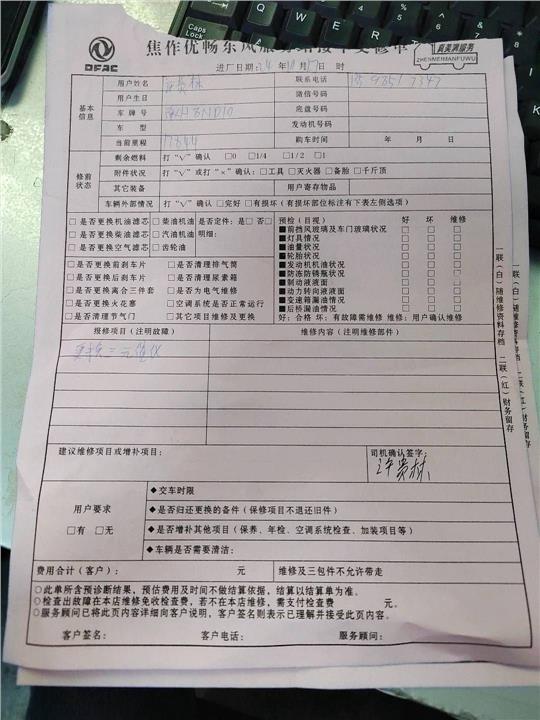 Caps Lock
焦作优畅东风服务站接车交修单
真美满服务
ZHENMEIMANFUWU
DFAC
进厂日期: 年 月 日 时
基本信息
用户姓名 联系电话
用户生日 微信号码
车牌号 底盘号码
车 型 发动机号码
当前里程 购车时间 年 月 日
修前状态
剩余燃料 打“√”确认 □0 □1/4 □1/2 □1
附件状况 打“√”或打“×”确认:□工具 □灭火器 □备胎 □千斤顶
其它装备 用户寄存物品
车辆外部情况 打“√”确认 □完好 □有损坏(有损坏部位标注有下表左侧选项)
□是否更换机油滤芯 □柴油机油 是否定件:是□ 否□
□是否更换柴油滤芯 □汽油机油 明细:
□是否更换空气滤芯 □齿轮油
□是否更换前刹车片 □是否清理排气筒
□是否更换后刹车片 □是否清理尿素箱
□是否更换离合三件套 □是否为电气维修
□是否更换火花塞 □空调系统是否正常运行
□是否清理节气门 □其它项目维修及更换
预检(目视) 好 坏 维修
■前挡风玻璃及车门玻璃状况 □ □ □
■灯具情况 □ □ □
■油量状况 □ □ □
■轮胎状况 □ □ □
■发动机机油状况 □ □ □
■防冻防锈瓶状况 □ □ □
■制动液液面 □ □ □
■动力转向液液面 □ □ □
■变速箱漏油情况 □ □ □
■后桥漏油情况 □ □ □
好:合格 坏:有故障需维修 维修:用户确认维修
报修项目(注明故障) 维修内容(注明维修部件)
更换三元催化
建议维修项目或增补项目: 司机确认签字:
许贵林
用户要求
□有 □无
◆交车时限
◆是否归还更换的备件(保修项目不退还旧件)
◆是否增补其他项目(保养、年检、空调系统检查、加装项目等)
◆车辆是否需要清洁:
费用合计(客户): 元 维修及三包件不允许带走
○此单所含预诊断结果,预估费用及时间不做结算依据,结算以结算单为准。
○检查出故障在本店维修免收检查费,若不在本店维修,需支付检查费 元。
○服务顾问已将此页内容详细向客户说明,客户签名则表示已理解并接受此页内容。
客户签名: 客户电话: 服务顾问:
一联(白)随维修资料存档 二联(红)财务留存
一联(白)随维修资料存档 二联(红)财务留存